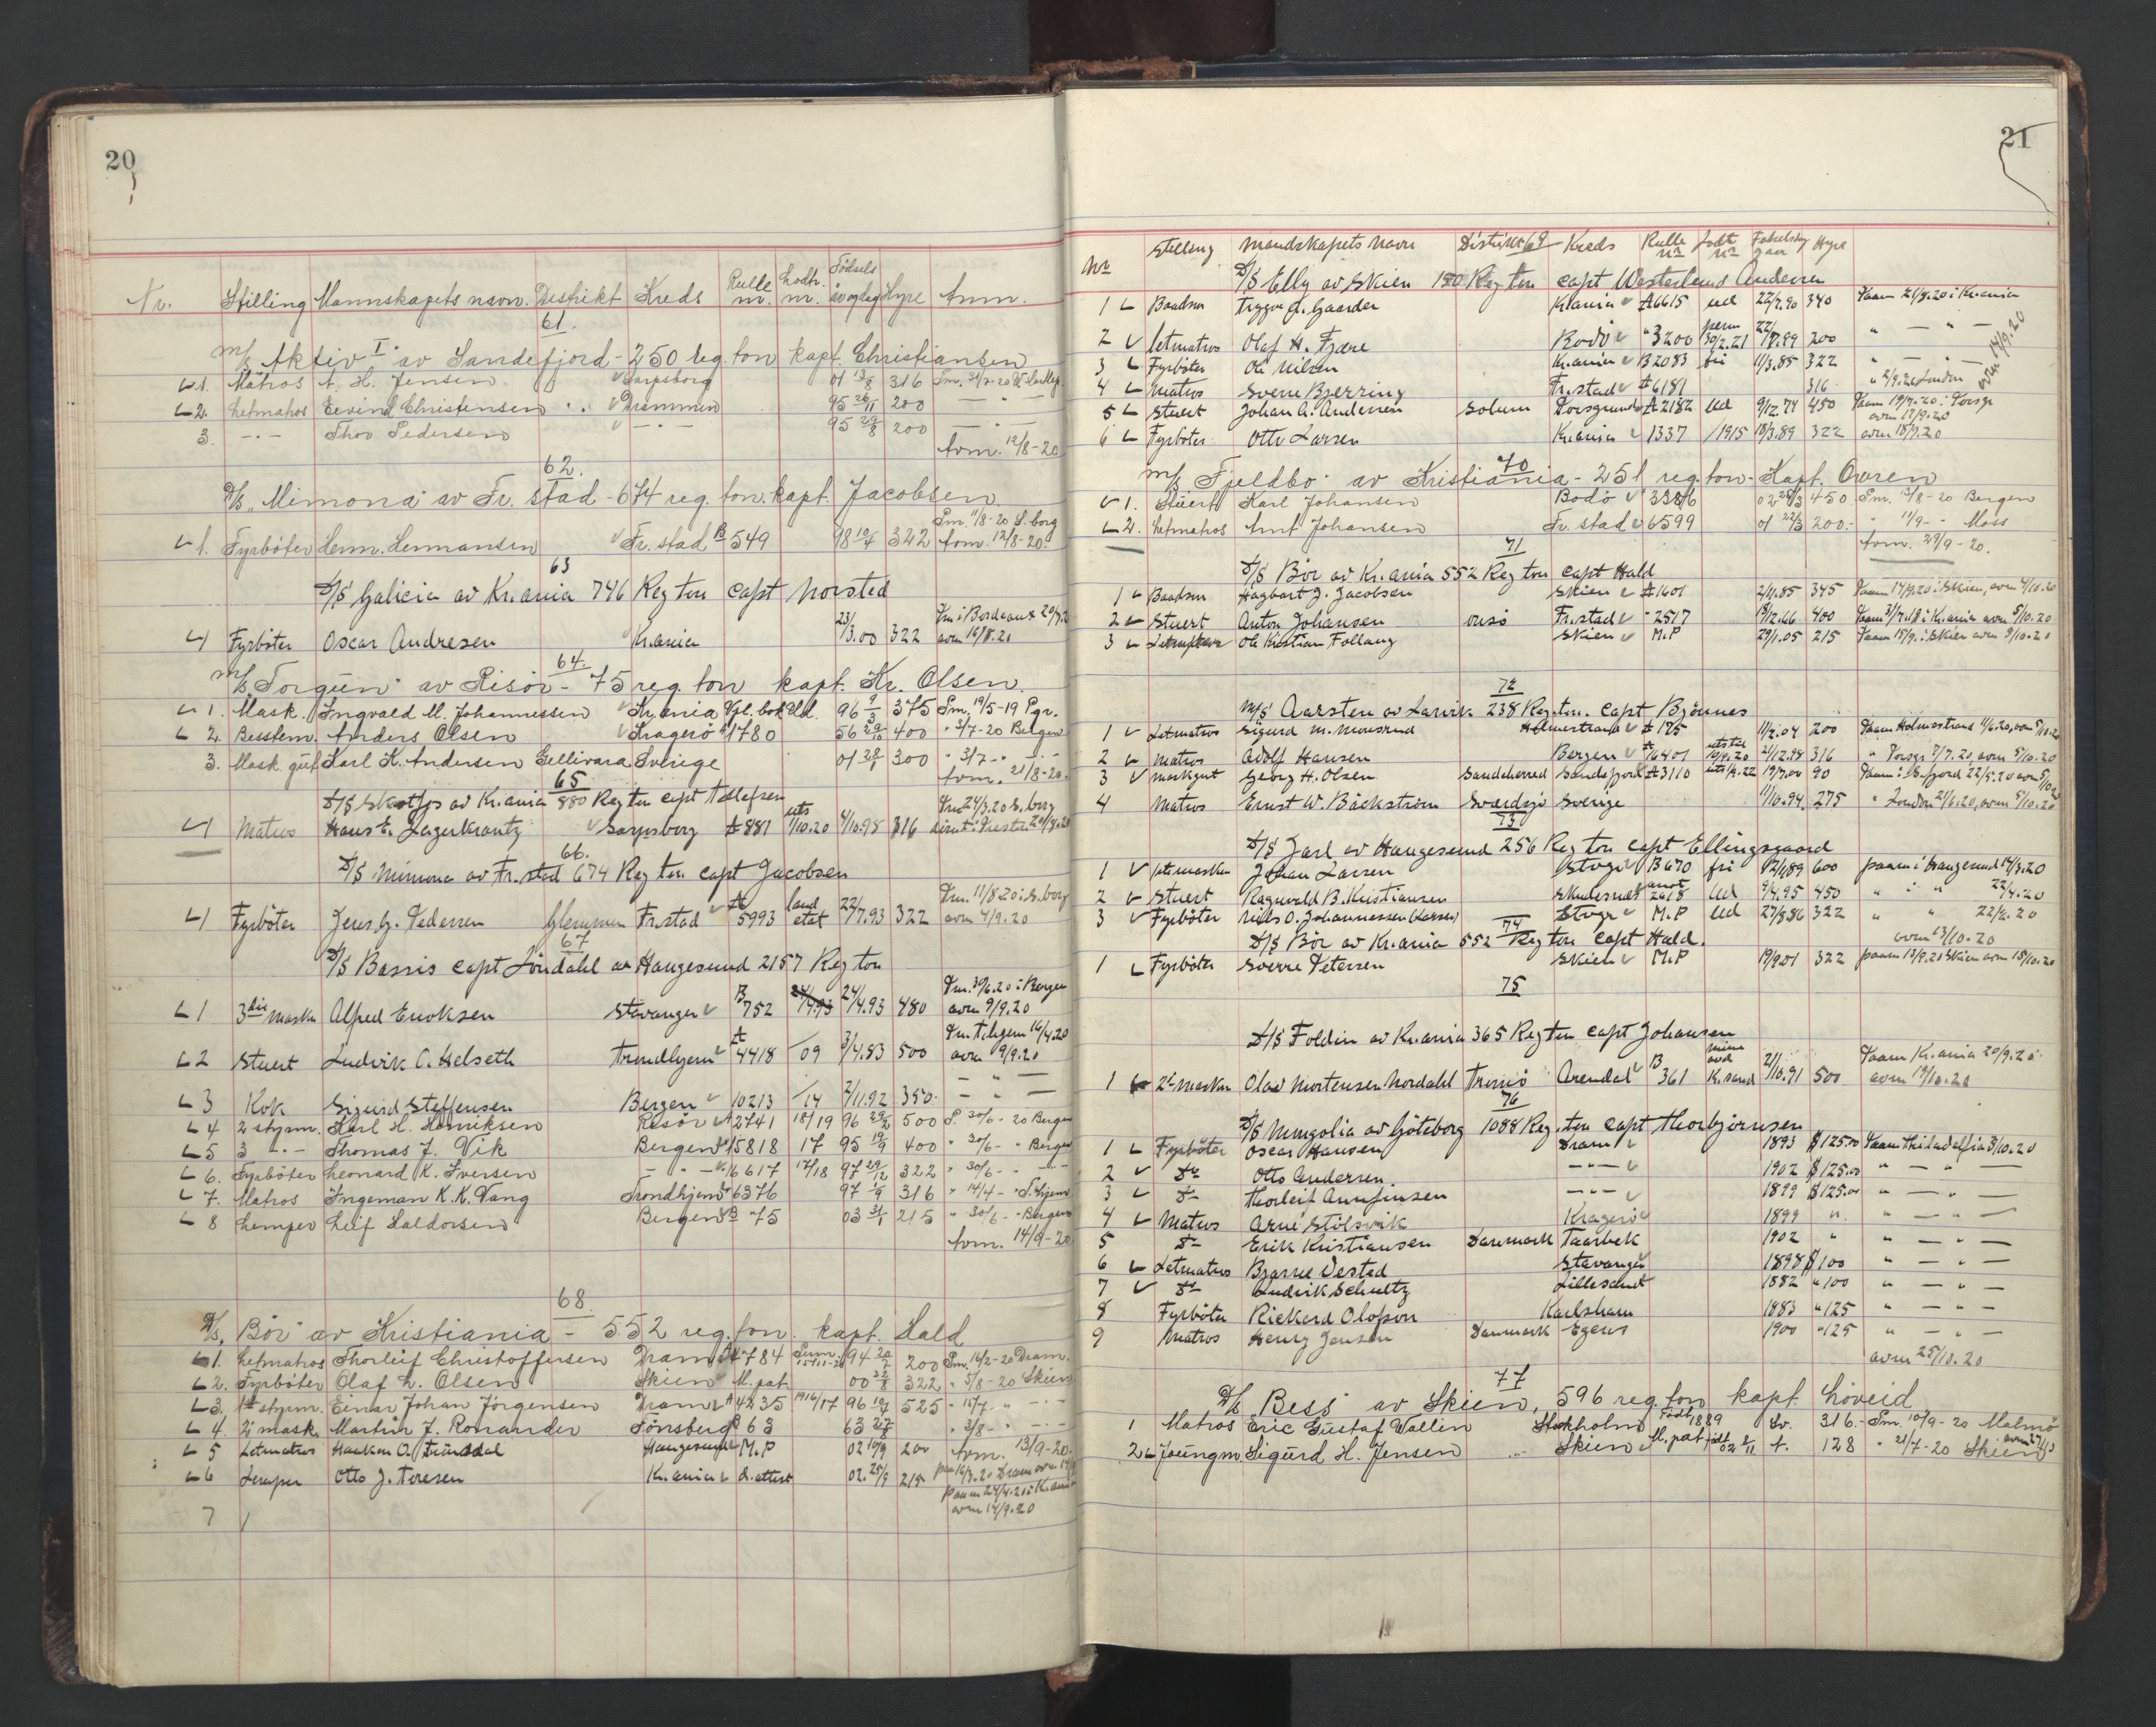 20
Nr. Stilling Mannskapets navn. Distrikt Kreds Rulle nr. Lodtr. nr. Fødsels år og dag Hyre Anm.
61.
M/S "Aktiv I" av Sandefjord - 250 reg. ton kapt. Christiansen
1. Matros A. H. Jensen Sarpsborg 01 13/8 316 Pm. 31/7-20
2. Letmatros Eivind Christensen Drammen 95 26/11 200 — " —
3. — " — Thor Pedersen — " — 95 22/8 200 — " —
Avm. 12/8-20
62.
D/S "Mimona" av Fr.stad - 674 reg. ton. kapt. Jacobsen.
Pm. 11/8-20 S.borg
1. Fyrböter Herm. Hermansen Fr.stad B 549 98 10/4 322 Avm. 12/8-20.
63
D/S Galicia av Kr.ania 746 Reg ton capt Norsted
1 Fyrböter Oscar Andresen Kr.ania 23/3.00 322 Pm i Bordeaux 20/7.20 avm 16/8.20
64.
M/S "Torgün" av Risör - 75 reg. ton kapt. Kr. Olsen.
1. Mask. Ingvald M. Johannessen Kr.ania Vpl. bok Ud. 96 9/3 375 Pm. 19/5-19 Pgr.
2. Bestem. Anders Olsen Kragerö 1780 56 29/10 400 " 3/7-20 Bergen
3. Mask gut Karl K. Andersen Gellivara Sverige 01 28/1 300 " 3/7 - " - " -
Avm. 21/8-20.
65
D/S Skotfos av Kr.ania 880 Reg ton capt Tellefsen
1 Matros Hans E. Lagerkrantz Sarpsborg A 881 uts 1/10.20 4/10.98 316 Pm 24/3.20 S.borg
66.
D/S Mimona av Fr.stad 674 Reg ton capt Jacobsen
1 Fyrböter Jens G. Pedersen Glemmen Fr.stad A 5993 land etat 22/7.93 322 Pm. 11/8 20 i S.borg avm 4/9.20
67
D/S Bassis capt Löndahl av Haugesund 2157 Reg ton
1 3die maskn Alfred Enoksen Stavanger B 752 24/4.93 24/4.93 480 Pm. 30/6.20 i Bergen avm 9/9.20
2 Stuert Ludvik O. Helseth Trondhjem A 4418 09 3/4.83 500 Pm T.hjem 14/4.20 avm 9/9.20
3 Kok Sigurd Steffensen Bergen 10213 14 2/11.92 350. — " —
4 2 styrm. Karl H. Henriksen Risör A 2741 18/19 96 29/2 500 P. 30/6 - 20 Bergen
5 3 — " — Thomas J. Vik Bergen 15818 17 95 19/9 400 " 30/6 - " Bergen
6. Fyrböter Leonard K. Iversen — " — 16617 17/18 97 29/12 322 " 30/6 - — " —
7. Matros Ingeman K. K. Vang Trondhjem 6376 97 1/9 316 " 14/4 - " T.hjem
8 Lemper Leif Haldorsen Bergen B 75 03 31/1 215 " 30/6 - " Bergen
Avm. 14/9-20
68.
D/S. "Bör" av Kristiania - 552 reg. ton. kapt. Hald
1. Letmatros Thorleif Christoffersen Dram. A 4784 Perm. 15/11-20 94 20/7 200 Pm. 16/2-20 Dram.
2. Fyrböter Olaf L. Olsen Skien M. pat. 00 22/8 322 " 5/8-20 Skien
3. 1st styrm. Einar Johan Jörgensen Dram. A 4235 1916/17 96 19/7 525 " 15/7 - " — " —
4. 2 mask. Martin J. Romander Tönsberg B 63 63 27/8 " 3/8 - " — " —
5 Letmatros Haaken O. Tünsdal Haugesund M.P 02 10/9 200 Avm. 13/9-20.
6 Lemper Otto J. Teresen Kr.ania d.attest 02. 25/9 215 paam 24/4.20 i Kr.ania avm 14/9.20
7
21
Nr Stilling Mandskapets navn Distrikt 69 Kreds Rulle nr Lodt nr Fødselsdag Hyre
D/S Elly av Skien 180 Reg ton capt Westerlund Andersen
1 Baadsm Trygve J. Gaarder Kr.ania A 6615 ud 22/7.90 340 Paam 21/8.20 i Kr.ania
2 Letmatros Olaf H. Fjære Bodö " 3200 perm 30/2.21 22/8.99 200 " — " —
3 Fyrböter Ole Nilsen Kr.ania B 2083 fri 11/3.85 322 " — " — avm 14/9.20
4 Matros Sverre Bjerring Fr.stad A 6181 316 " 2/9.20 London
5 Stuert Johan A. Andersen Solum Porsgrund A 2182 ud 9/12.74 450 Paam 19/7.20 i Porsgr avm 17/9.20
6 Fyrböter Otto Larsen Kr.ania 1337 /1915 18/3.89 322 avm 18/9.20
70
M/S "Fjeldbo" av Kristiania - 251 reg. ton - Kapt. Ovren
1. Stüert Karl Johansen Bodö 3386 02 23/3 450 Pm. 3/8-20 Bergen
2. Letmatros Arnt Johansen Fr.stad 6599 01 22/3 200.- " 11/9 - " Moss
Avm. 29/9-20.
71
D/S Bör av Kr.ania 552 Reg ton capt Hald
1 Baadsm Hagbart J. Jacobsen Skien A 1601 2/11.85 345 Paam 14/9.20 i Skien, avm 4/10.20
2 Stuert Anton Johansen onsö Fr.stad " 2517 18/12.66 400 Paam 31/7.18 i Kr.ania avm 5/10.20
3 Ole Kristian Follaug Skien M.P 29/1.05 215 Paam 15/9. i Skien avm 9/10.20
72
M/S Aarsten av Larvik 238 Reg. ton. Capt Bjönnes
1 Letmatros Sigurd M. Mousrud Holmestrand A 175 11/2.04 200 Paam Holmestrand 11/6.20, avm 5/10.20
2 Matros Adolf Hansen Bergen A 16401 utstd 10/9.20 21/12.98 316 " Porsgr 7/7.20 avm 5/10.20
3 Maskgut Georg H. Olsen Sandeherred Sandefjord A 3110 19/7.00 90 Paam i S.fjord 22/9.20 avm 5/10.20
4 Matros Ernst W. Bäckström Sværdsjö Sverige 11/10.94 275 " London 21/6.20, avm 5/10.20
73
D/S Jarl av Haugesund 256 Reg ton capt Ellingsgaard
1 Johan Larsen Stvgr B 670 fri 12/1.89 600 paam i Haugesund 14/3.20
2 Stuert Ragnvald B. Kristiansen Skudesnes 2618 ud 9/4.95 450 " i " 22/4.20
3 Fyrböter Nils O. Johannessen (Larsen) Stvgr M.P ud 27/8.86 322 " " 22/2.20
avm 13/10.20
74
D/S Bör av Kr.ania 552 Reg ton capt Hald.
1 Fyrböter Sverre Petersen Skien M.P 19/9.01 322 paam 13/9.20 Skien avm 15/10.20
75
D/S Foldin av Kr.ania 365 Reg ton capt Johansen
1 2' maskn Olav Mortensen Nordahl Tromö Arendal B 361 mine avd K.sand 2/10.91 500 Paam Kr.ania 20/9.20 avm 19/10.20
76
D/S Mongolia av Göteborg 1088 Reg. ton capt Thorbjörnsen
1 Fyrböter Oscar Hansen Dram 1893 $125.00 Paam Philadelfia 3/10.20
2 Do Otto Andersen. — " — 1902 $125.00 " — " —
3 Do Thorleif Arnfinsen — " — 1899 $125.00 " — " —
4 Matros Arne Stölsvik Kragerö 1899 " " — " —
5 Do Erik Kristiansen Danmark Taarbek 1902 " " — " —
6 Letmatros Bjarne Vestad Stavanger 1898 $100 " — " —
7 Do Ludvik Schultz Lillesand 1882 " 100 " — " —
8 Fyrböter Rickard Olofson Karlsham 1883 " 125 " — " —
9 Matros Henry Jensen Danmark Egens 1900 " 125 " — " —
avm 25/10.20
77
D/S "Bess" av Skien, 596 reg. ton kapt. Löveid
1 Matros Eric Gustaf Wallin Stockholm Födt 1889 Sv. 316.- Pm. 10/9-20 Malmö
2 Joungm Sigürd H. Jensen Skien M. pat födt 02 8/11 A. 128 " 21/7-20 Skien